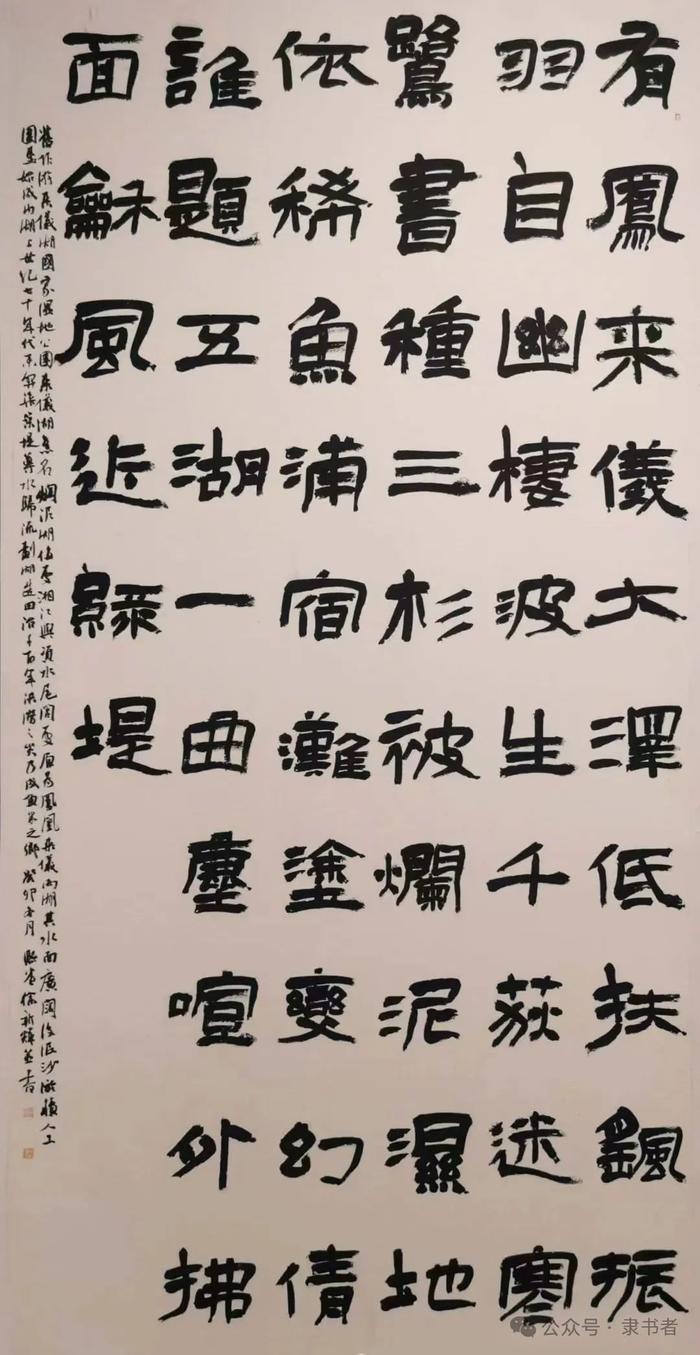 有鳳来儀大澤低扶颻振
羽自幽棲波生千荻迷寒
鷺書種三杉被爛泥濕地
依稀魚浦宿灘塗變幻倩
誰題五湖一曲塵喧外拂
面龢風近綠堤
舊作游來儀湖國家濕地公園來儀湖舊名爛泥湖位處湘江與資水尾閭處原為鳳凰來儀兩湖其水面廣闊後泥沙淤積人工
圍墾始成內湖上世紀七十年代末築堤導水歸流劃湖造田治千百年洪潦之災乃成魚米之鄉癸卯冬月徐新輝並書
公众号·隶书者